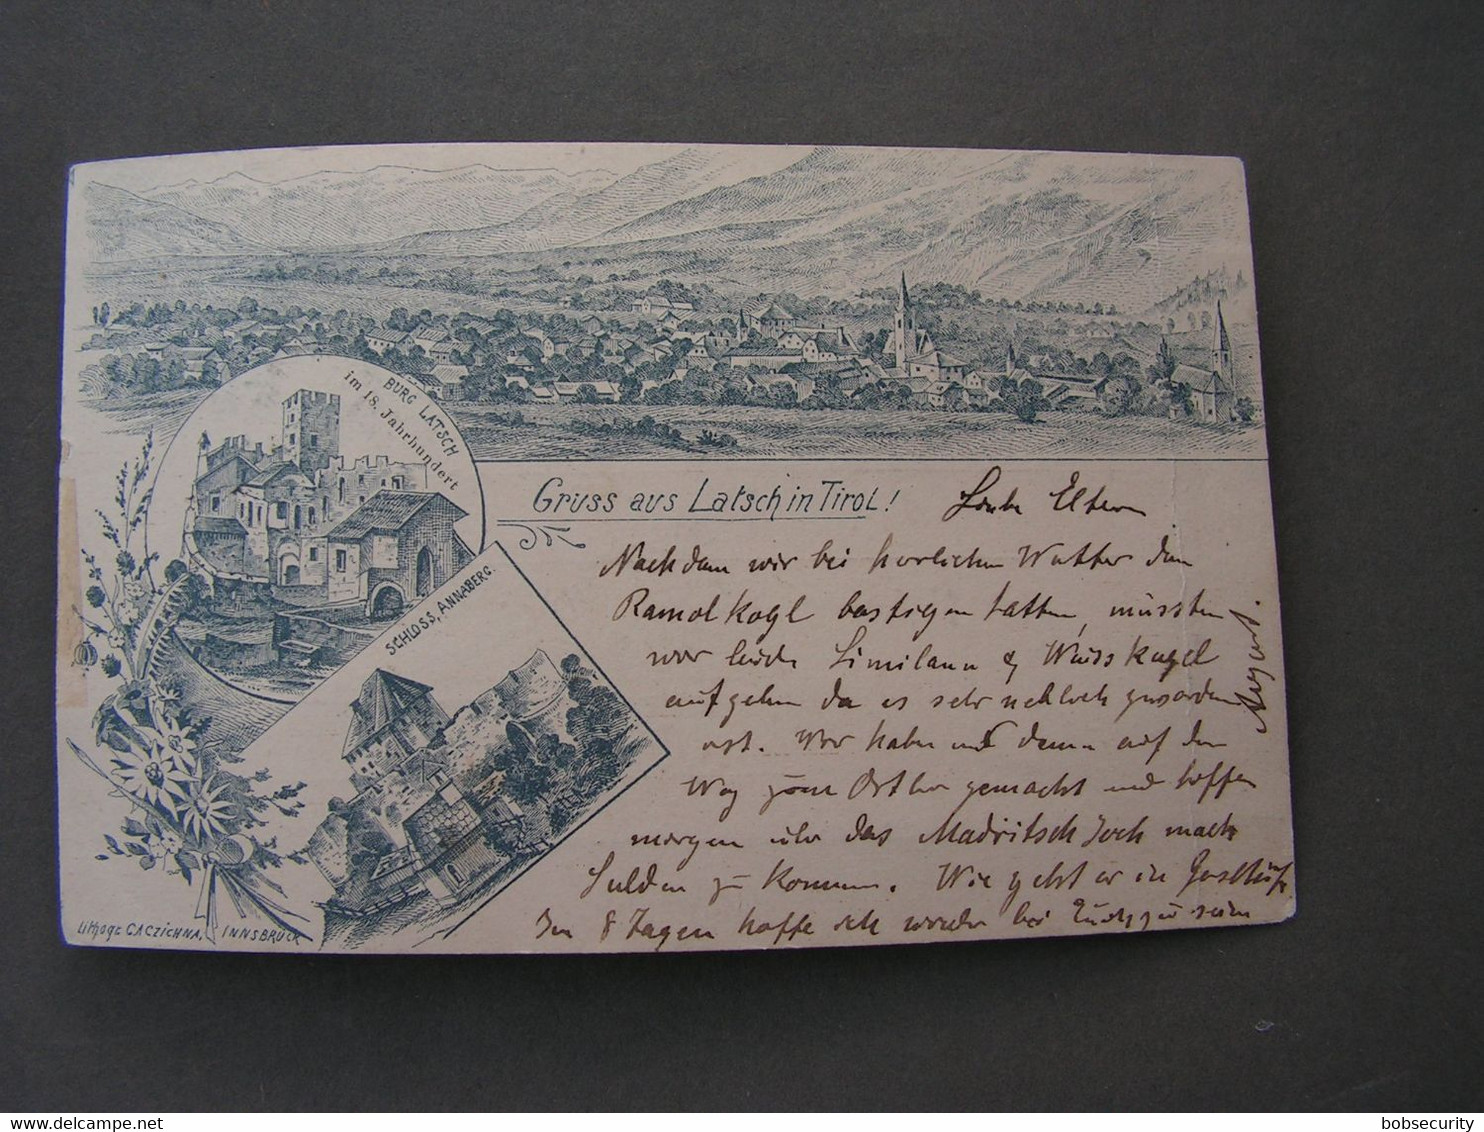 BURG LATSCH
im 18. Jahrhundert
SCHLOSS, ANNABERG.
Gruss aus Latsch in Tirol!
Liebe Eltern
Nachdem wir bei herrlichem Wetter den
Ramolkogl bestiegen hatten, mussten
wir leider Similaun & Weisskugel
aufgeben da es sehr schlecht geworden
ist. Wir haben uns dann auf den
Weg zum Ortler gemacht und hoffen
morgen über das Madritsch Joch nach
Sulden zu kommen. Wie geht es in
In 8 Tagen hoffe ich wieder bei Euch zu sein
August.
Lithogr. C. A. CZICHNA, INNSBRUCK
bobsecurity